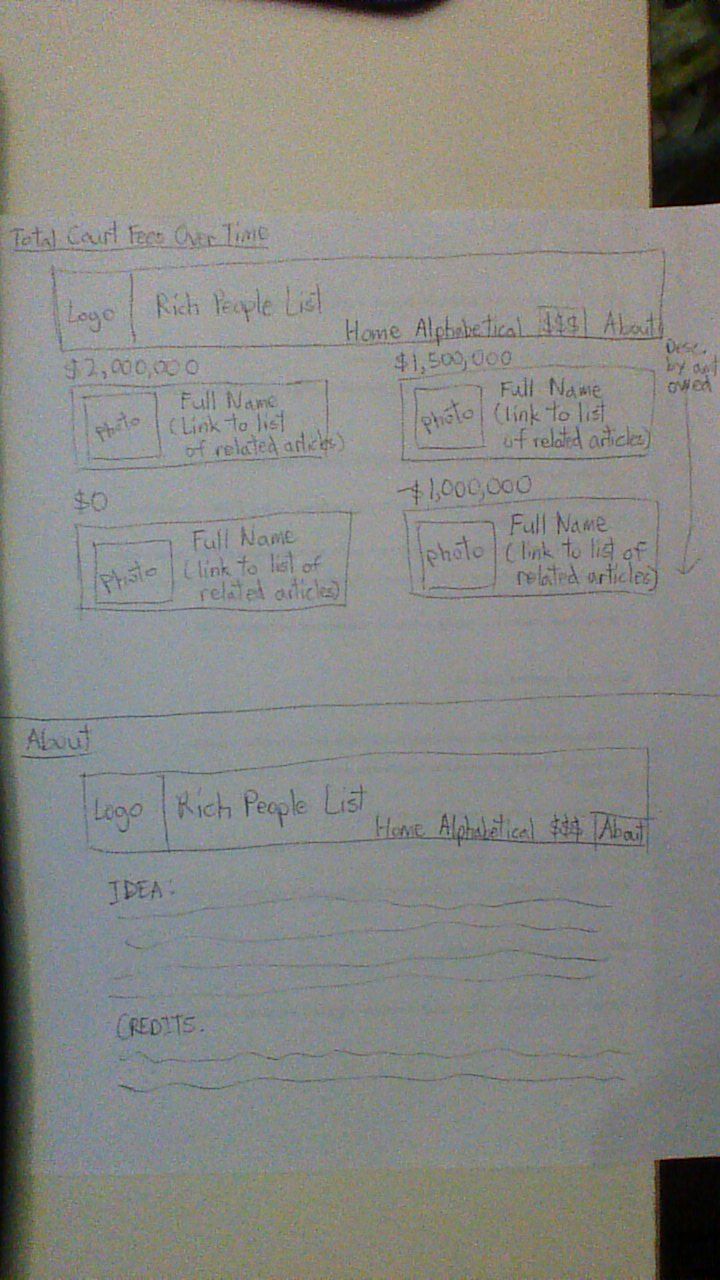 Total Court Fees Over Time
Logo
Rich People List
Home Alphabetical $$$ About
Desc.
by amt
owed
$2,000,000
photo
Full Name
(link to list
of related articles)
$1,500,000
photo
Full Name
(link to list
of related articles)
$0
photo
Full Name
(link to list of
related articles)
-$1,000,000
photo
Full Name
(link to list of
related articles)
About
Logo
Rich People List
Home Alphabetical $$$ About
IDEA:
CREDITS.